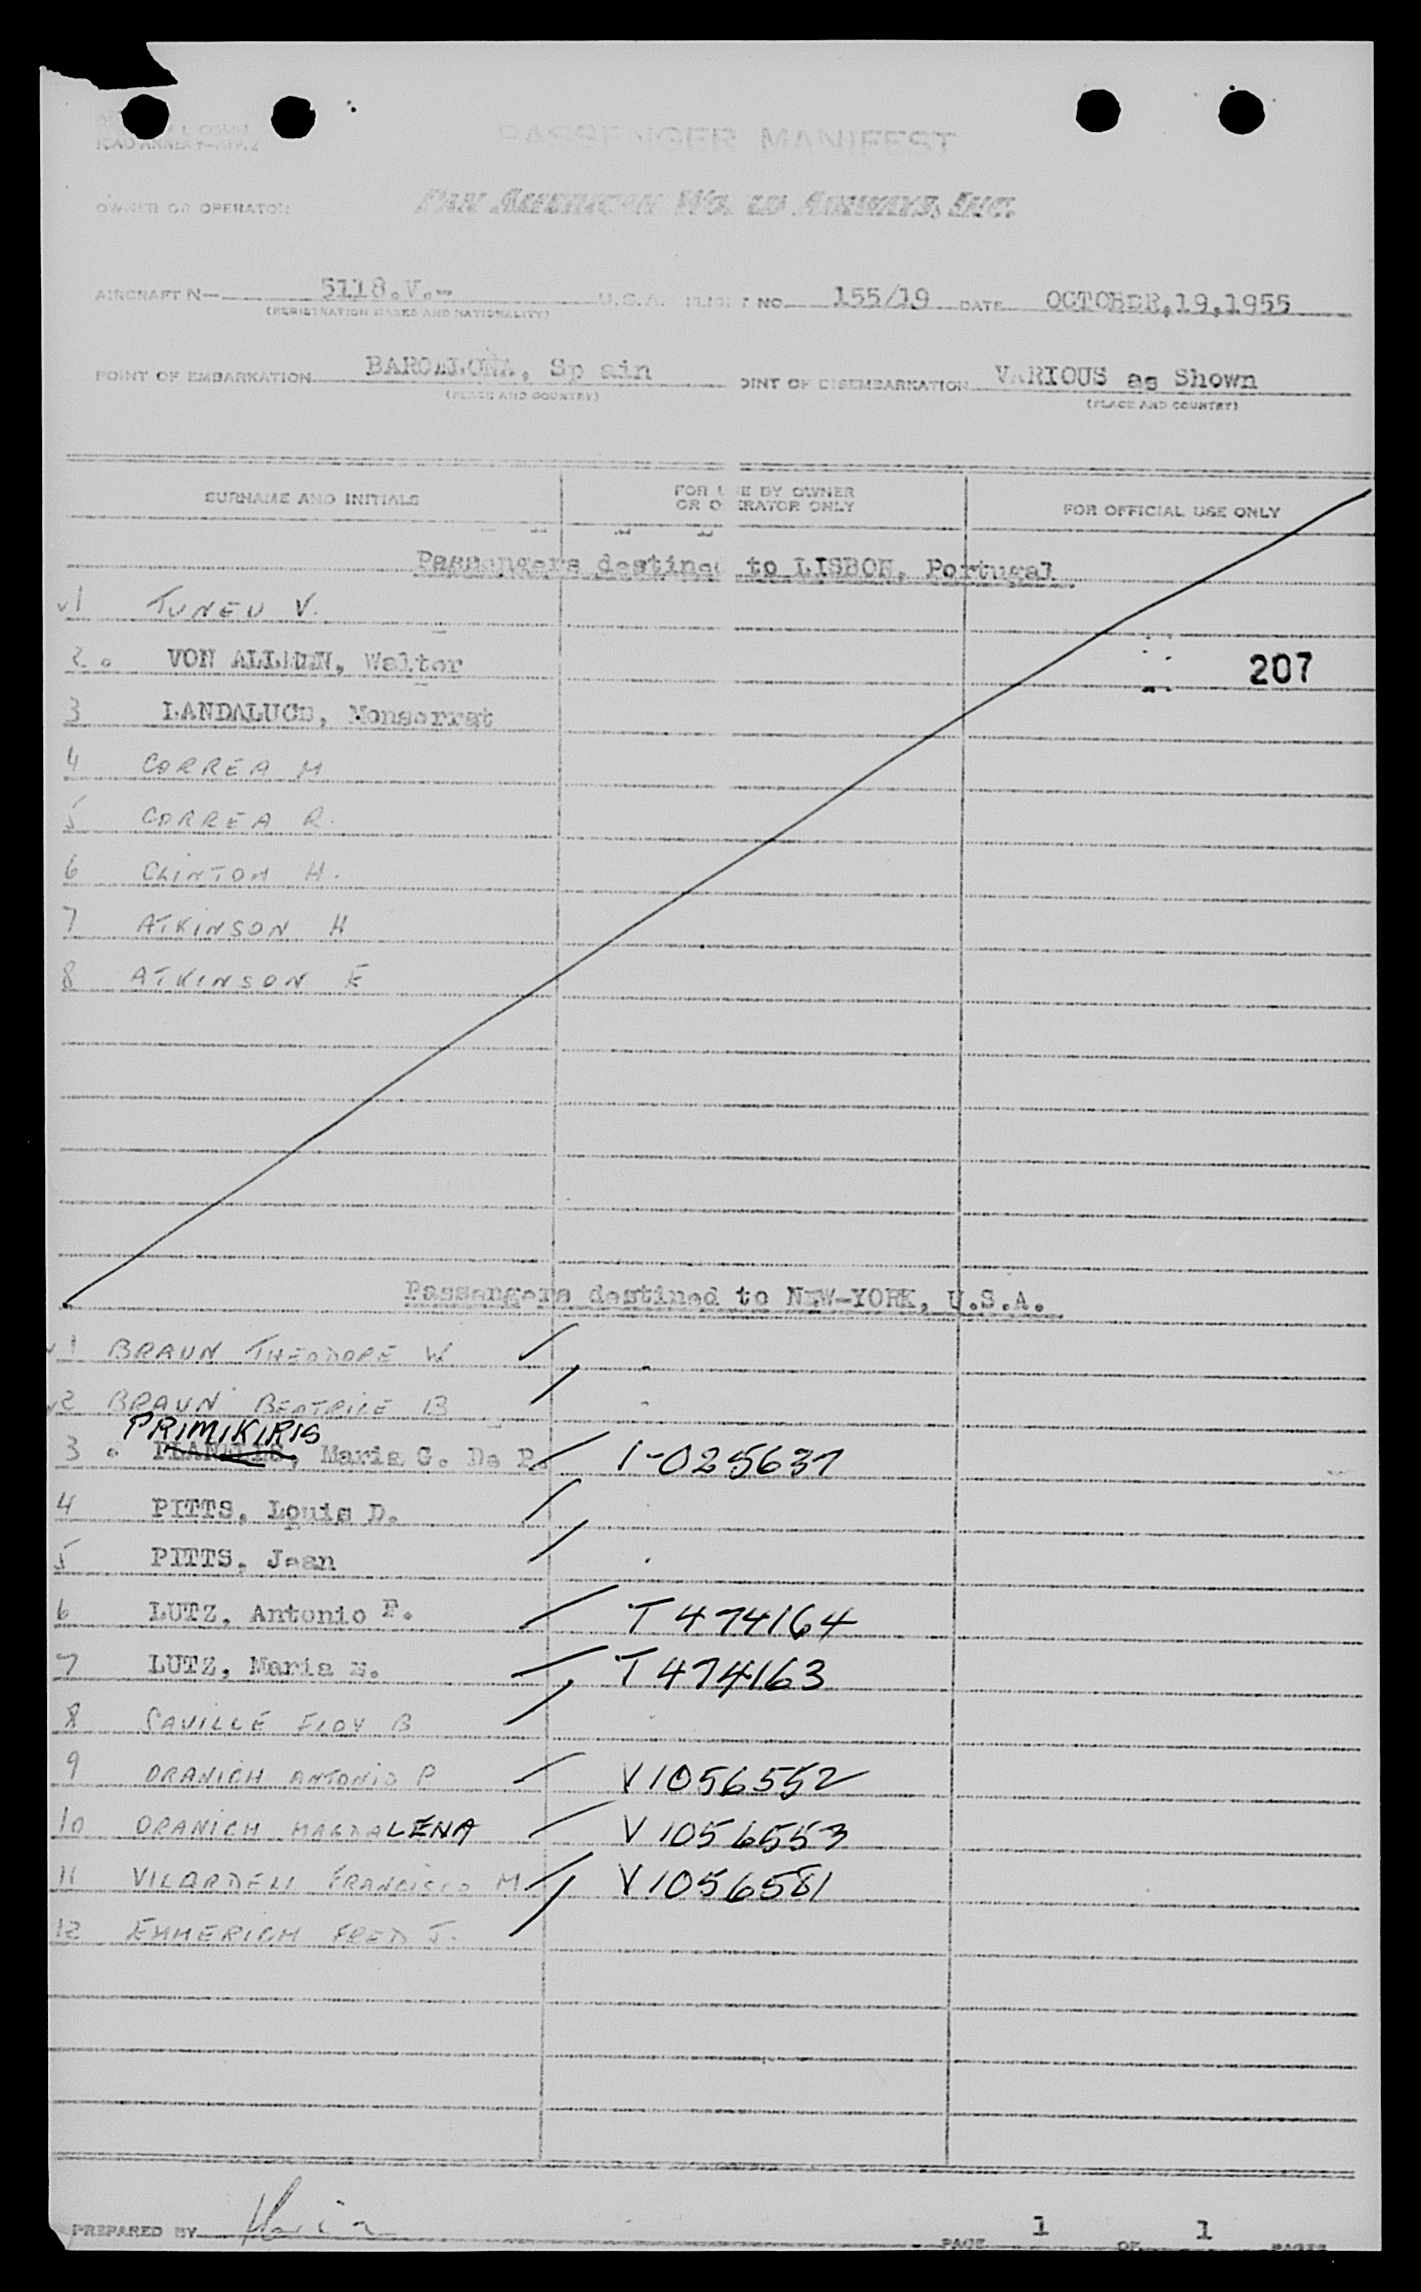 PASSENGER MANIFEST
OWNER OR OPERATOR PAN AMERICAN WORLD AIRWAYS, INC.
AIRCRAFT N— 5118.V.- U.S.A. FLIGHT NO. 155/19 DATE OCTOBER,19,1955
(REGISTRATION MARKS AND NATIONALITY)
POINT OF EMBARKATION BARCELONA, Sp ain OINT OF DISEMBARKATION VARIOUS as Shown
(PLACE AND COUNTRY) (PLACE AND COUNTRY)
SURNAME AND INITIALS FOR USE BY OWNER OR OPERATOR ONLY FOR OFFICIAL USE ONLY
Passengers destined to LISBON, Portugal.
v1 TUNEU V.
2 VON ALLMEN, Walter 207
3 LANDALUCE, Monserrat
4 CORREA M
5 CORREA R.
6 CLINTON H.
7 ATKINSON H
8 ATKINSON E
Passengers destined to NEW-YORK, U.S.A.
v1 BRAUN THEODORE W
v2 BRAUN BEATRICE B
PRIMIKIRIS
3 Maria G. De P. 1-025637
4 PITTS, Louis D.
5 PITTS, Jean
6 LUTZ, Antonio F. T 474164
7 LUTZ, Maria E. T 474163
8 SAVILLE FLOY B
9 ORANICH ANTONIO P V1056552
10 ORANICH MAGDALENA V 1056553
11 VILARDELL FRANCISCO M. V1056581
12 EMMERICH FRED J.
PREPARED BY PAGE 1 OF 1 PAGES